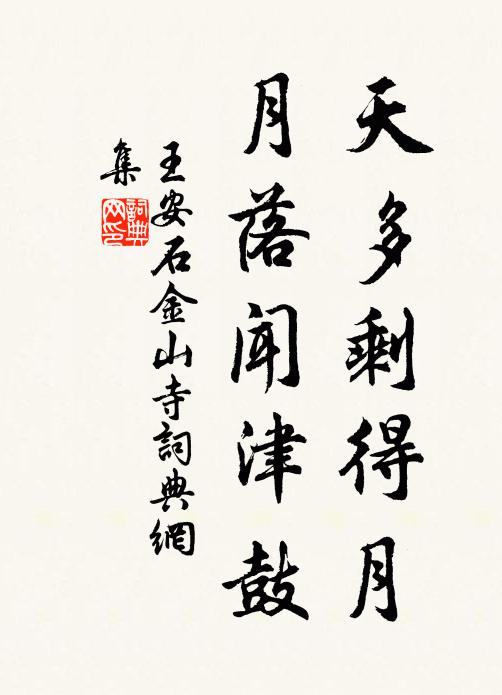 天多剩得月
月落闻津鼓
王安石金山寺詞典網
集
詞典
网印